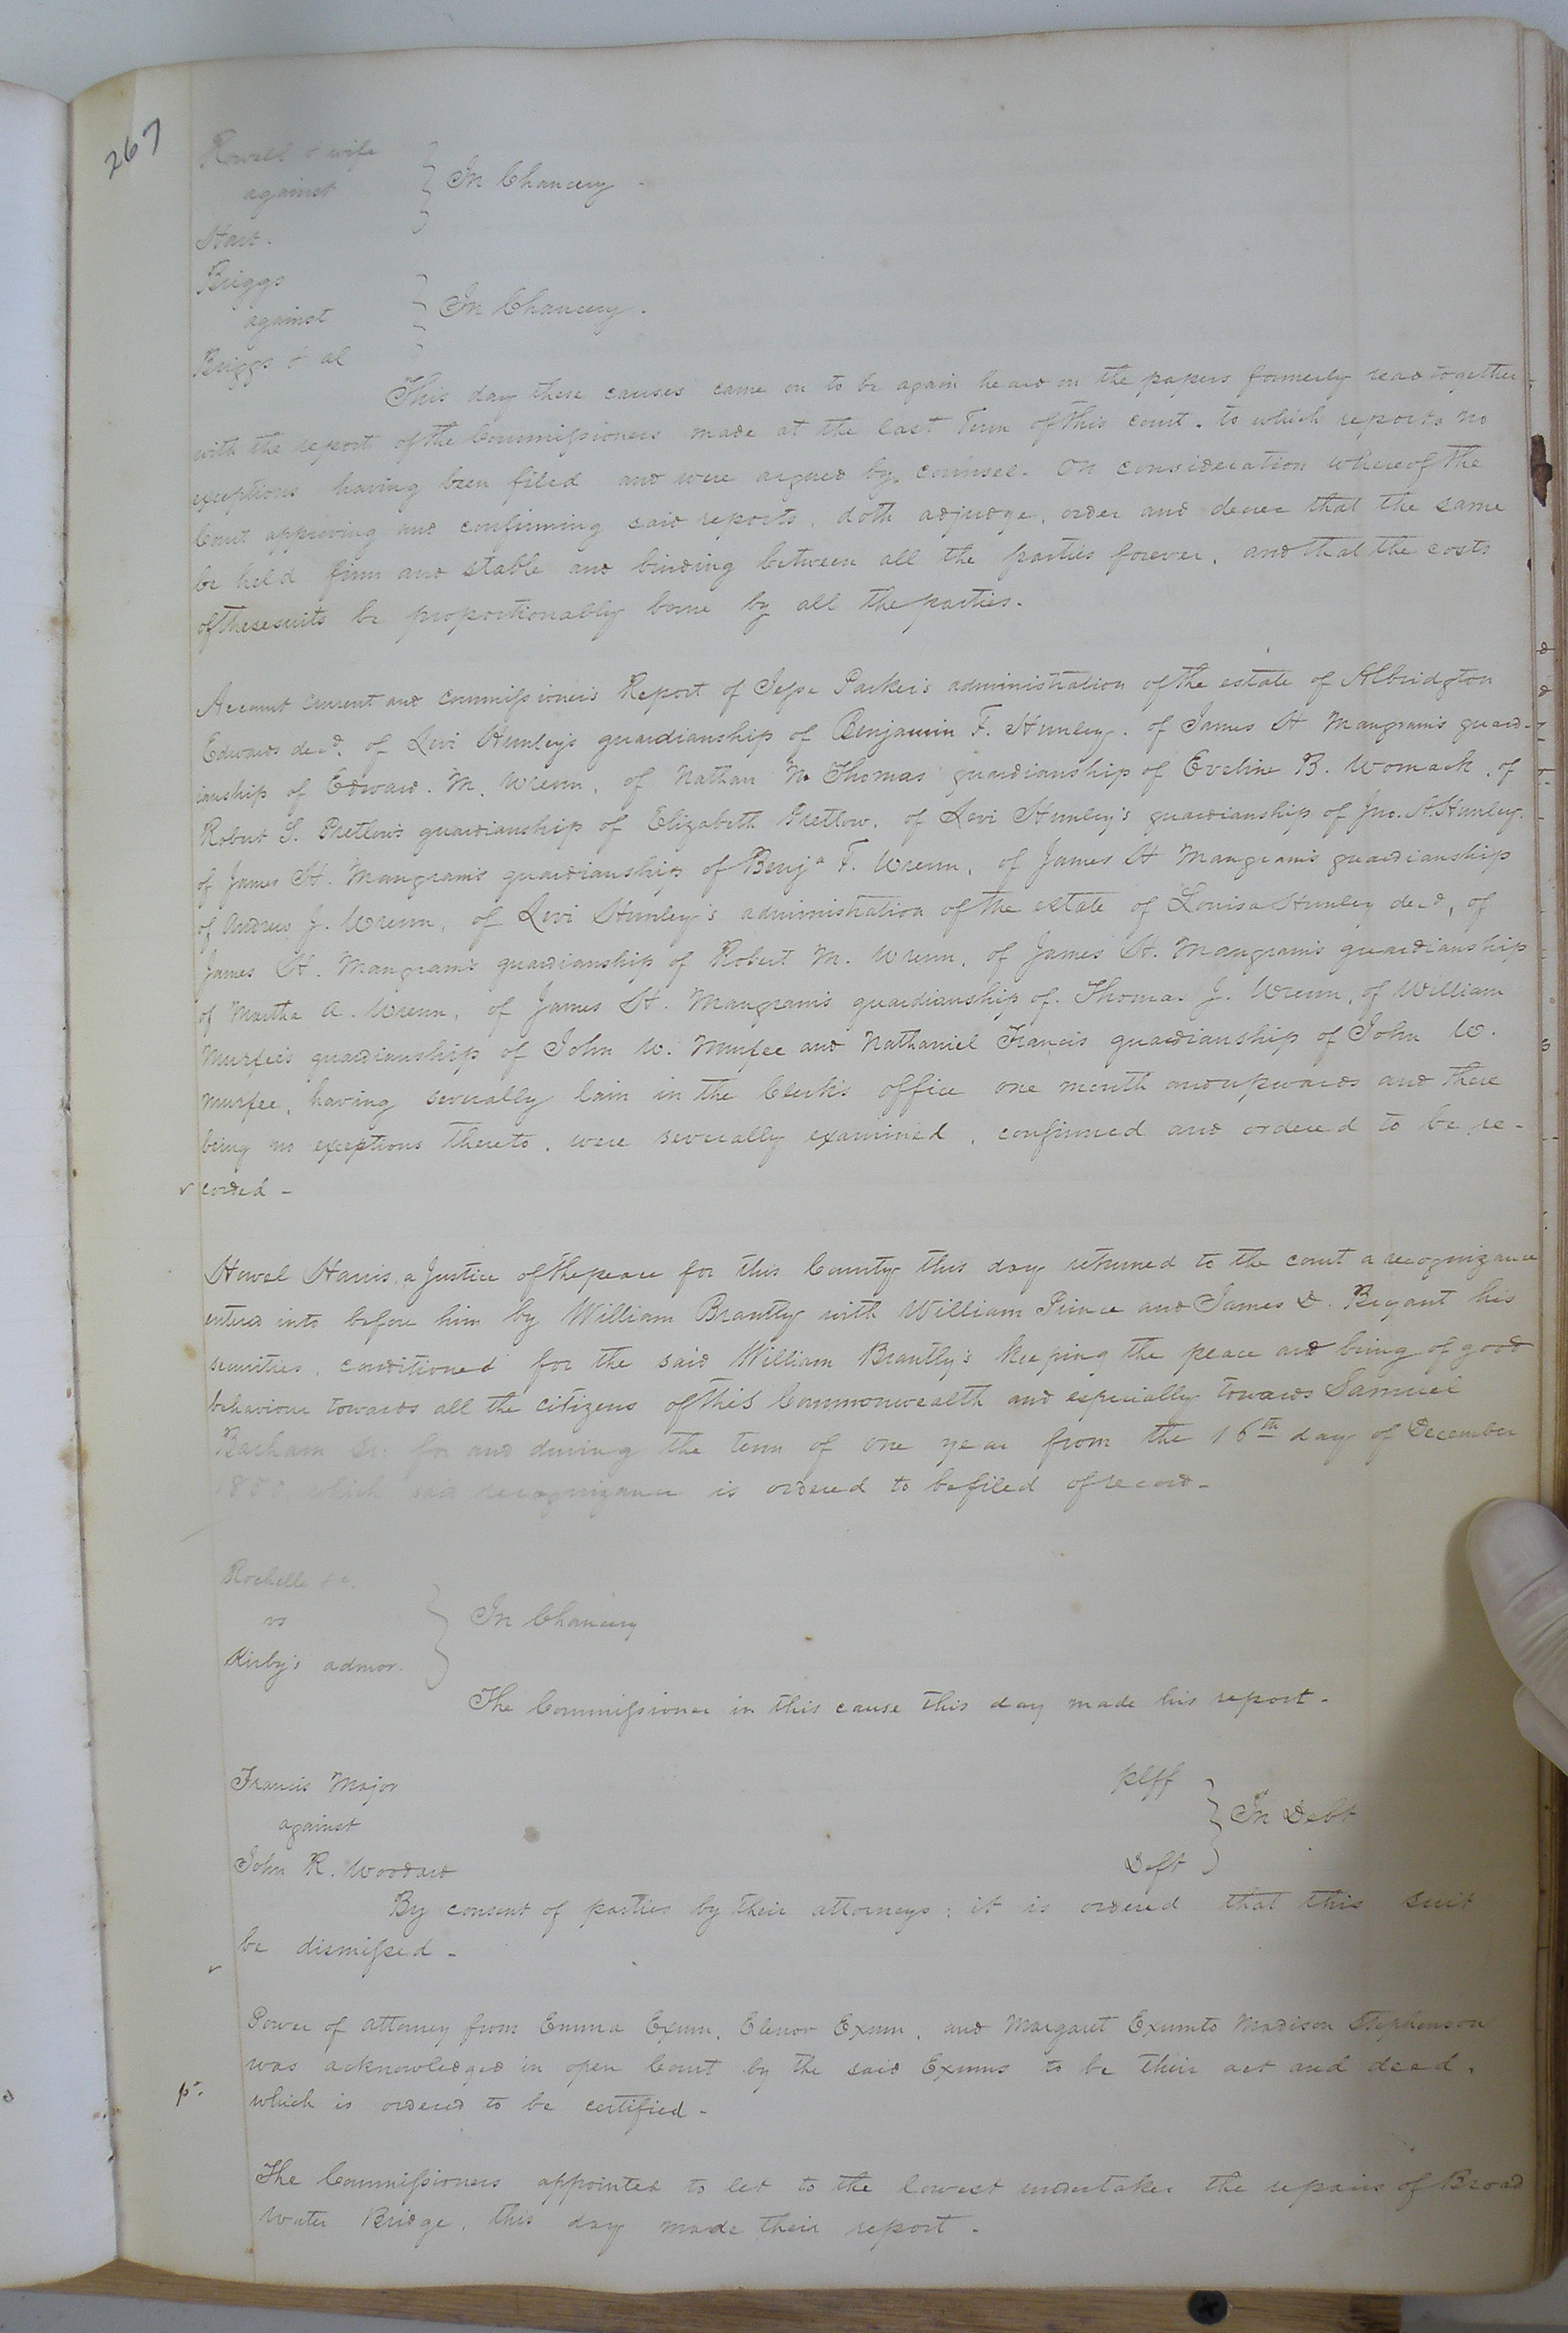 267
Rowell & wife
against } In Chancery.
Hart.
Briggs
against } In Chancery.
Briggs & al
This day these causes came on to be again heard on the papers formerly read together
with the report of the Commissioners made at the last Term of this court. to which reports no
exceptions having been filed and were argued by counsel. On consideration whereof the
Court approving and confirming said reports, doth adjudge, order and decree that the same
be held firm and stable and binding between all the parties forever, and that the costs
of these suits be proportionably borne by all the parties.
Account current and commissioner's Report of Jesse Parker's administration of the estate of Albridgton
Edwards decd. of Levi Hunley's guardianship of Benjamin F. Hunley. of James H Mangram's guard-
ianship of Edward. M. Wrenn, of Nathan M Thomas guardianship of Eveline B. Womack, of
Robert S. Pretlow's guardianship of Elizabeth Pretlow, of Levi Hunley's guardianship of Jno. H. Hunley.
of James H. Mangram's guardianship of Benja F. Wrenn, of James H Mangram's guardianship
of Andrew J. Wrenn, of Levi Hunley's administration of the estate of Louisa Hunley decd, of
James H. Mangram's guardianship of Robert M. Wrenn, of James H. Mangram's guardianship
of Martha A. Wrenn, of James H. Mangram's guardianship of Thomas J. Wrenn, of William
Murfee's guardianship of John W. Murfee and Nathaniel Francis guardianship of John W.
Murfee, having severally lain in the Clerk's office one month and upwards and there
being no exceptions thereto, were severally examined, confirmed and ordered to be re-
corded -
Howel Harris, a Justice of the peace for this County this day returned to the court a recognizance
entered into before him by William Brantly with William Prince and James D. Bryant his
securities, conditioned for the said William Brantly's keeping the peace and being of good
behaviour towards all the citizens of this Commonwealth and especially towards Samuel
Barham Sr. for and during the term of one year from the 16th day of December
which said recognizance is ordered to be filed of record -
Rochelle &c.
vs } In Chancery
Kirby's admor.
The Commissioner in this cause this day made his report -
Francis Major plff
against } In Debt
John R. Woodard Deft
By consent of parties by their attorneys; it is ordered that this suit
be dismissed -
Power of attorney from Emma Exum, Elenor Exum, and Margaret Exum to Madison Stephenson
was acknowledged in open Court by the said Exums to be their act and deed,
which is ordered to be certified -
The Commissioners appointed to let to the lowest undertaker the repairs of Broad
Water Bridge, this day made their report -